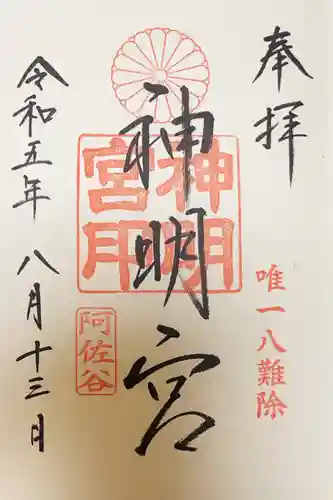 奉拝
唯一八難除
神明宮
神明
宮
阿佐谷
令和五年 八月十三日